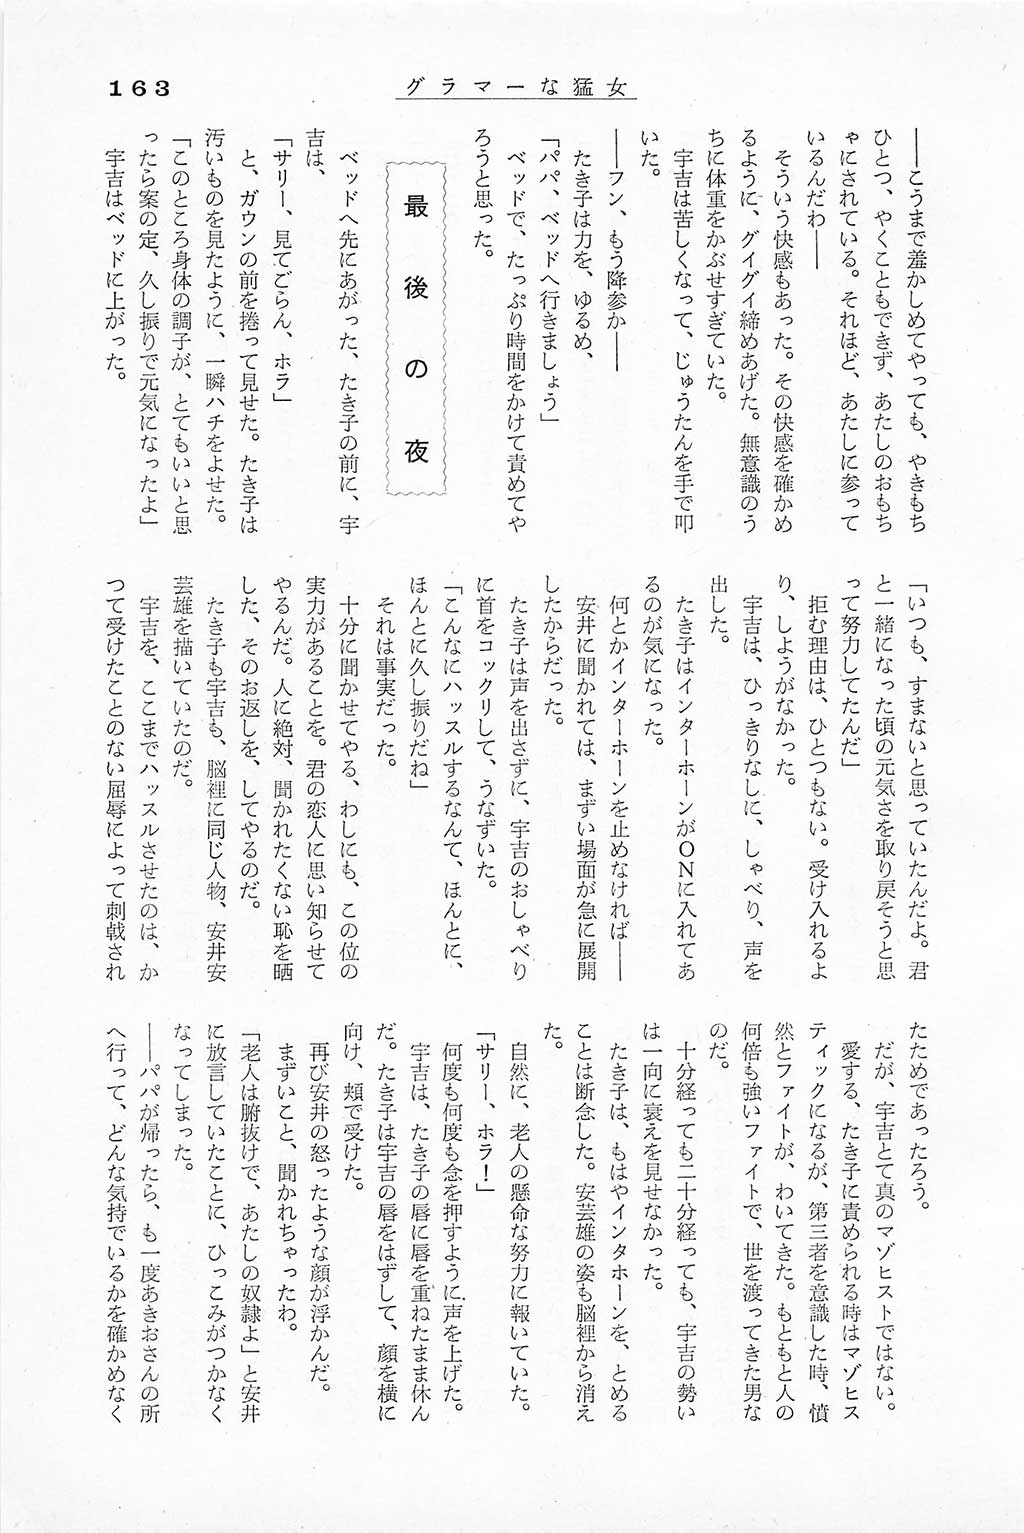 163
グラマーな猛女
――こうまで羞かしめてやっても、やきもち
ひとつ、やくこともできず、あたしのおもち
ゃにされている。それほど、あたしに参って
いるんだわ――
そういう快感もあった。その快感を確かめ
るように、グイグイ締めあげた。無意識のう
ちに体重をかぶせすぎていた。
宇吉は苦しくなって、じゅうたんを手で叩
いた。
――フン、もう降参か――
たき子は力を、ゆるめ、
「パパ、ベッドへ行きましょう」
ベッドで、たっぷり時間をかけて責めてや
ろうと思った。
最後の夜
ベッドへ先にあがった、たき子の前に、宇
吉は、
「サリー、見てごらん、ホラ」
と、ガウンの前を捲って見せた。たき子は
汚いものを見たように、一瞬ハチをよせた。
「このところ身体の調子が、とてもいいと思
ったら案の定、久し振りで元気になったよ」
宇吉はベッドに上がった。
「いつも、すまないと思っていたんだよ。君
と一緒になった頃の元気さを取り戻そうと思
って努力してたんだ」
拒む理由は、ひとつもない。受け入れるよ
り、しようがなかった。
宇吉は、ひっきりなしに、しゃべり、声を
出した。
たき子はインターホーンがONに入れてあ
るのが気になった。
何とかインターホーンを止めなければ――
安井に聞かれては、まずい場面が急に展開
したからだった。
たき子は声を出さずに、宇吉のおしゃべり
に首をコックリして、うなずいた。
「こんなにハッスルするなんて、ほんとに、
ほんとに久し振りだね」
それは事実だった。
十分に聞かせてやる、わしにも、この位の
実力があることを。君の恋人に思い知らせて
やるんだ。人に絶対、聞かれたくない恥を晒
した、そのお返しを、してやるのだ。
たき子も宇吉も、脳裡に同じ人物、安井安
芸雄を描いていたのだ。
宇吉を、ここまでハッスルさせたのは、か
つて受けたことのない屈辱によって刺戟され
たためであったろう。
だが、宇吉とて真のマゾヒストではない。
愛する、たき子に責められる時はマゾヒス
ティックになるが、第三者を意識した時、憤
然とファイトが、わいてきた。もともと人の
何倍も強いファイトで、世を渡ってきた男な
のだ。
十分経っても二十分経っても、宇吉の勢い
は一向に衰えを見せなかった。
たき子は、もはやインタホーンを、とめる
ことは断念した。安芸雄の姿も脳裡から消え
た。
自然に、老人の懸命な努力に報いていた。
「サリー、ホラ！」
何度も何度も念を押すように声を上げた。
宇吉は、たき子の唇に唇を重ねたまま休ん
だ。たき子は宇吉の唇をはずして、顔を横に
向け、頬で受けた。
再び安井の怒ったような顔が浮かんだ。
まずいこと、聞かれちゃったわ。
「老人は腑抜けで、あたしの奴隷よ」と安井
に放言していたことに、ひっこみがつかなく
なってしまった。
――パパが帰ったら、も一度あきおさんの所
へ行って、どんな気持でいるかを確かめなく